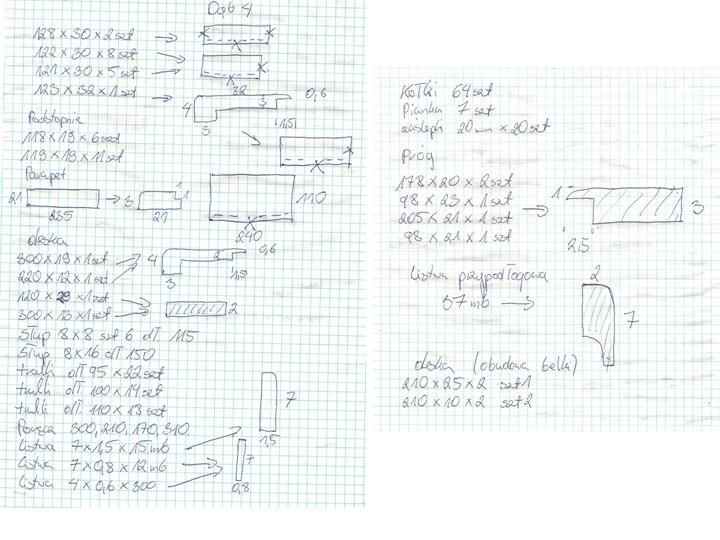 Dąb 4
128 x 30 x 2 szt
122 x 30 x 8 szt
121 x 30 x 5 szt
123 x 32 x 1 szt
32
3
0,6
4
3
1,5
Podstopnie
118 x 19 x 6 szt
119 x 19 x 11 szt
Parapet
21
235
3
1
1
21
110
240
deska
300 x 19 x 1 szt
220 x 12 x 1 szt
120 x 29 x 1 szt
300 x 13 x 1 szt
4
2
0,6
3
1,5
2
Słup 8 x 8 szt 6 dł 115
Słup 8 x 16 dł 150
tralki dł 95 x 22 szt
tralki dł 100 x 14 szt
tralki dł 110 x 18 szt
Poręcz 300, 210, 170, 310.
listwa 7 x 1,5 x 15 mb
listwa 7 x 0,8 x 12 mb
listwa 4 x 0,6 x 300
7
1,5
7
0,8
Kołki 64 szt
Pianka 7 szt
zaślepki 20 mm x 20 szt
Próg
178 x 20 x 2 szt
98 x 23 x 1 szt
205 x 21 x 1 szt
98 x 21 x 1 szt
1
3
2,5
listwa przypodłogowa
57 mb
2
7
deska (obudowa belki)
210 x 25 x 2 szt 1
210 x 10 x 2 szt 2